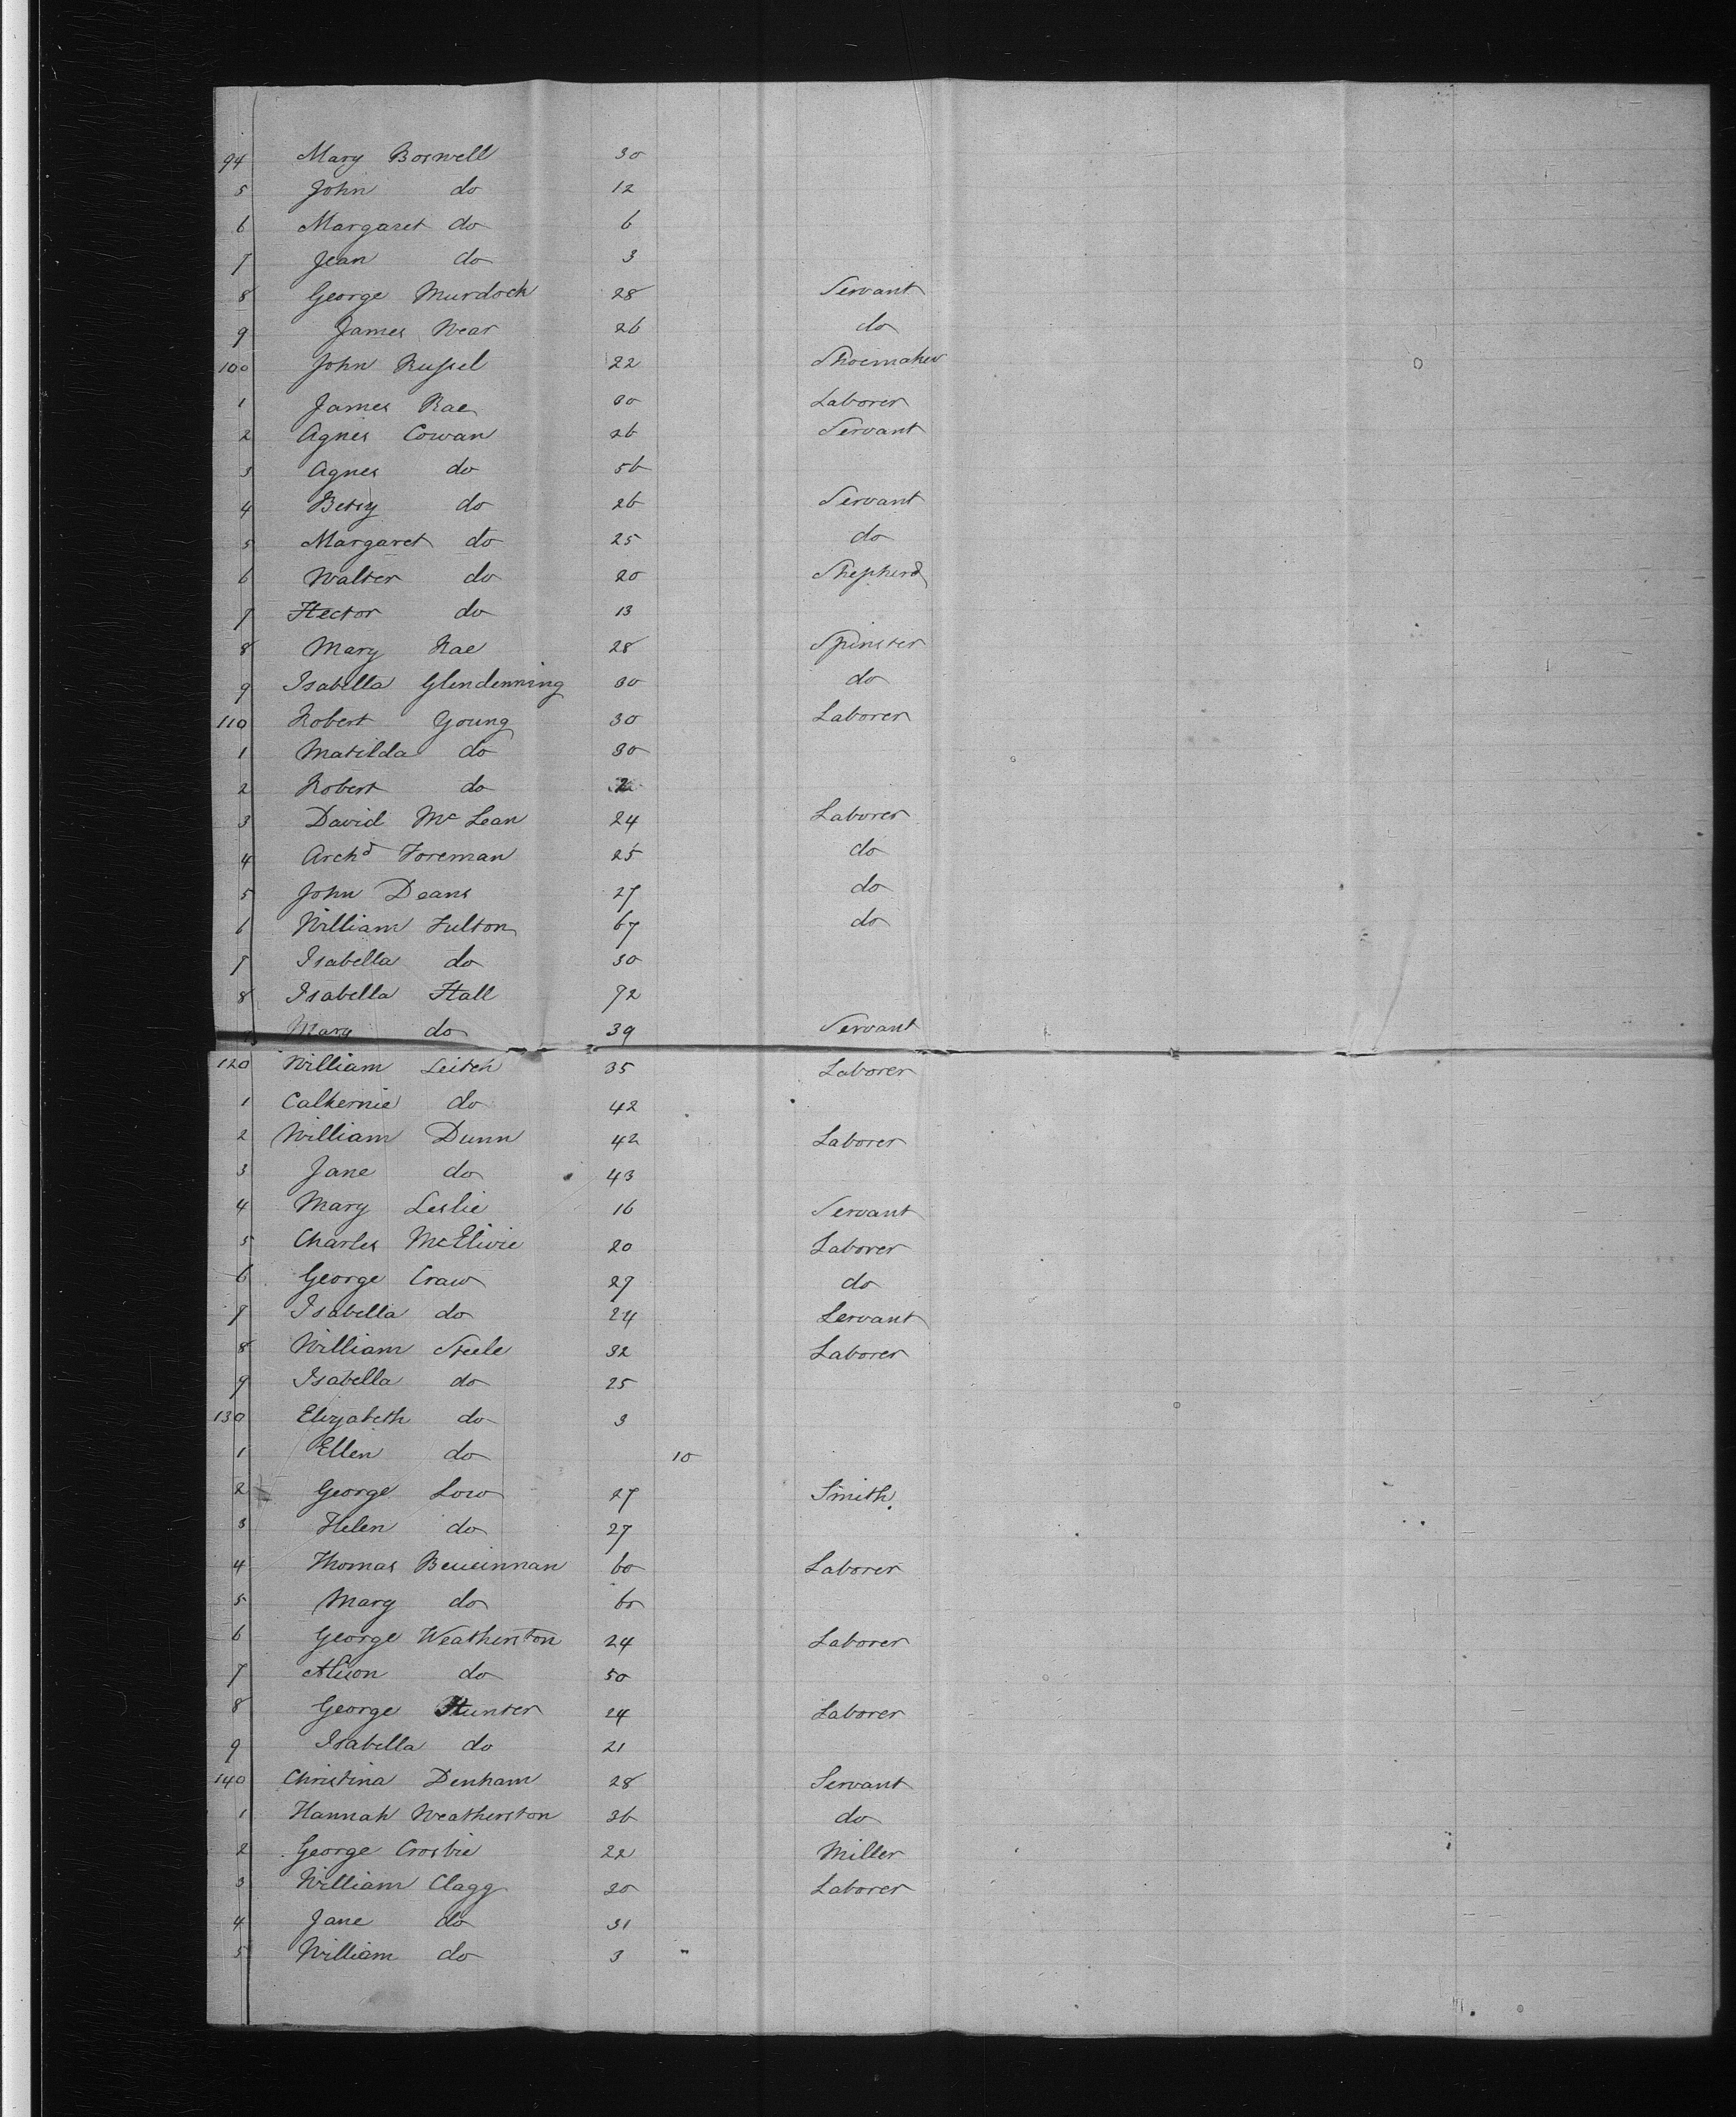 94 Mary Boswell 30
5 John do 12
6 Margaret do 6
7 Jean do 3
8 George Murdoch 28 Servant
9 James Wear 26 do
100 John Russel 22 Shoemaker
1 James Rae 30 Laborer
2 Agnes Cowan 26 Servant
3 Agnes do 56
4 Betsy do 26 Servant
5 Margaret do 25 do
6 Walter do 20 Shepherd
7 Hector do 13
8 Mary Rae 28 Spinster
9 Isabella Glendenning 30 do
110 Robert Young 30 Laborer
1 Matilda do 30
2 Robert do 2
3 David McLean 24 Laborer
4 Archd Foreman 25 do
5 John Deans 27 do
6 William Fulton 67 do
7 Isabella do 30
8 Isabella Hall 72
Mary do 39 Servant
120 William Leitch 35 Laborer
1 Cathernie do 42
2 William Dunn 42 Laborer
3 Jane do 43
4 Mary Leslie 16 Servant
5 Charles 20 Laborer
6 George Craw 27 do
7 Isabella do 24 Servant
8 William Steele 32 Laborer
9 Isabella do 25
130 Elizabeth do 3
1 Ellen do 10
2 George Low 27 Smith.
3 Helen do 27
4 Thomas 60 Laborer
5 Mary do 60
6 George Weatherston 24 Laborer
7 Alison do 50
8 George Hunter 24 Laborer
9 Isabella do 21
140 Christina Denham 28 Servant
1 Hannah Weatherston 36 do
2 George Crosbie 22 Miller
3 William Clagg 30 Laborer
4 Jane do 31
5 William do 3 "